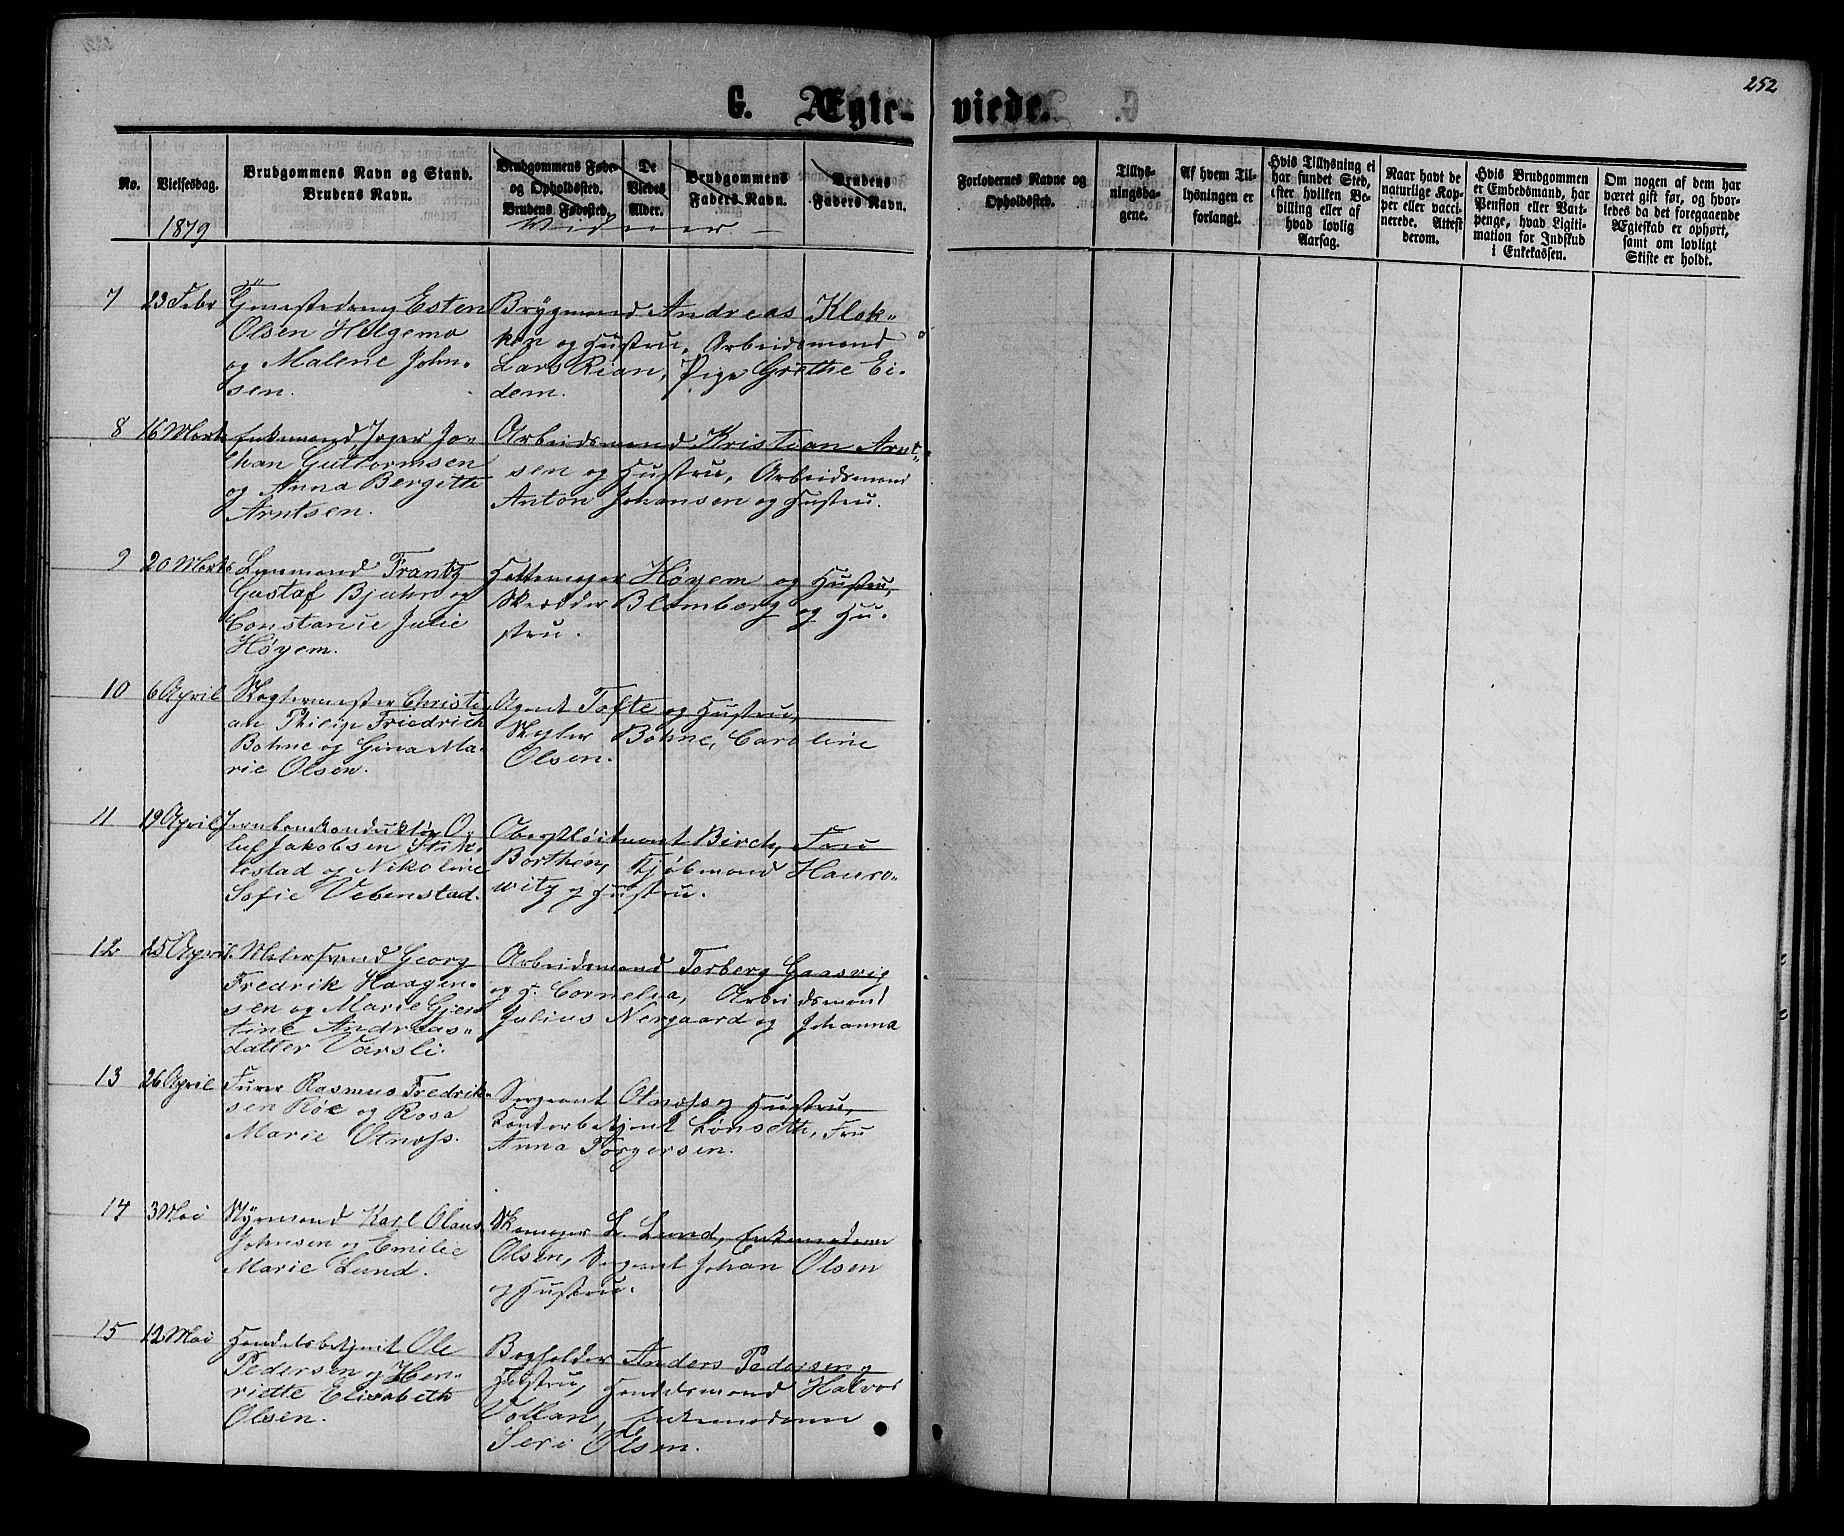 252
G. Ægte-
viede.
No.
Vielsesdag.
Brudgommens Navn og Stand.
Brudens Navn.
Brudgommens Føde-
og Opholdssted.
Brudens Fødested.
De
Viedes
Alder.
Brudgommens
Faders Navn.
Brudens
Faders Navn.
Forlovernes Navne og
Opholdssted.
Tillys-
ningsda-
gene.
Af hvem Til-
lysningen er
forlangt.
Hvis Tillysning ei
har fundet Sted,
efter hvilken Be-
villing eller af
hvad lovlig
Aarsag.
Naar havt de
naturlige Kop-
per eller vacci-
nerede. Attest
derom.
Hvis Brudgommen
er Embedsmand, har
Pension eller Vart-
penge, hvad Ligiti-
mation for Indskud
i Enkekassen.
Om nogen af dem har
været gift før, og hvor-
ledes da det foregaaende
Ægteskab er ophørt,
samt om lovligt
Skifte er holdt.
1879
Vidner
7 23 Febr Esten
Olsen Helgemo
og Malene John-
sen.
Brygmand Andreas Klok-
ken og Hustru, Arbeidsmand
Lars Rian, Pige Grethe Ei-
dem.
8 16 Marts Enkemand Jo-
han Guttormsen
og Anna Bergitte
Arntsen.
Arbeidsmand Kristian Arnt-
sen og Hustru, Arbeidsmand
Anton Johansen og Hustru.
9 20 Marts Frantz
Gustaf Bjuhr og
Constance Julie
Høyem.
Hattemager Høyem og Hustru,
Skrædder Blomberg og Hu-
stru.
10 6 April Slagtermester Christi-
an Philip Friedrich
Bohne og Gina Ma-
rie Olsen.
Agent Tofte og Hustru,
Slagter Bohne, Caroline
Olsen.
11 19 April Jernbanekonduktør O-
luf Jakobsen Stik-
lestad og Nikoline
Sofie Vebenstad.
Oberstløitnant Birch, Fru
Borthen, Kjøbmand Hauro-
witz og Hustru.
12 25 April Malersvend Georg
Fredrik Haagen-
sen og Marie Gjer-
tine Andreas-
datter Varsli.
Arbeidsmand Torberg Gaasvig
og H. Cornelia, Arbeidsmand
Julius Nergaard og Johanna
13 26 April Furer Rasmus Fredrik-
sen Röe og Rosa
Marie Otness.
Sergeant Otness og Hustru,
Kontorbetjent Lønseth, Fru
Anna Torgersen.
14 3 Mai Styrmand Karl Olaus
Johnsen og Emilie
Marie Lund.
Skomager L. Lund, Enkemadam
Olsen, Sergeant Johan Olsen
og Hustru.
15 12 Mai Handelsbetjent Ole
Pedersen og Hen-
riette Elisabeth
Olsen.
Bogholder Anders Pedersen og
Hustru, Handelsmand Halvor
Vollan, Enkemadam
Seri Olsen.